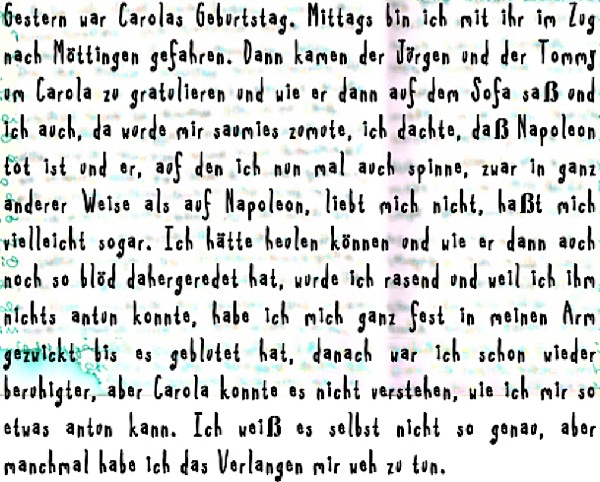 Gestern war Carolas Geburtstag. Mittags bin ich mit ihr im Zug
nach Möttingen gefahren. Dann kamen der Jörgen und der Tommy
um Carola zu gratulieren und wie er dann auf dem Sofa saß und
ich auch, da wurde mir saumies zumute, ich dachte, daß Napoleon
tot ist und er, auf den ich nun mal auch spinne, zwar in ganz
anderer Weise als auf Napoleon, liebt mich nicht, haßt mich
vielleicht sogar. Ich hätte heulen können und wie er dann auch
noch so blöd dahergeredet hat, wurde ich rasend und weil ich ihm
nichts antun konnte, habe ich mich ganz fest in meinen Arm
gezwickt bis es geblutet hat, danach war ich schon wieder
beruhigter, aber Carola konnte es nicht verstehen, wie ich mir so
etwas antun kann. Ich weiß es selbst nicht so genau, aber
manchmal habe ich das Verlangen mir weh zu tun.